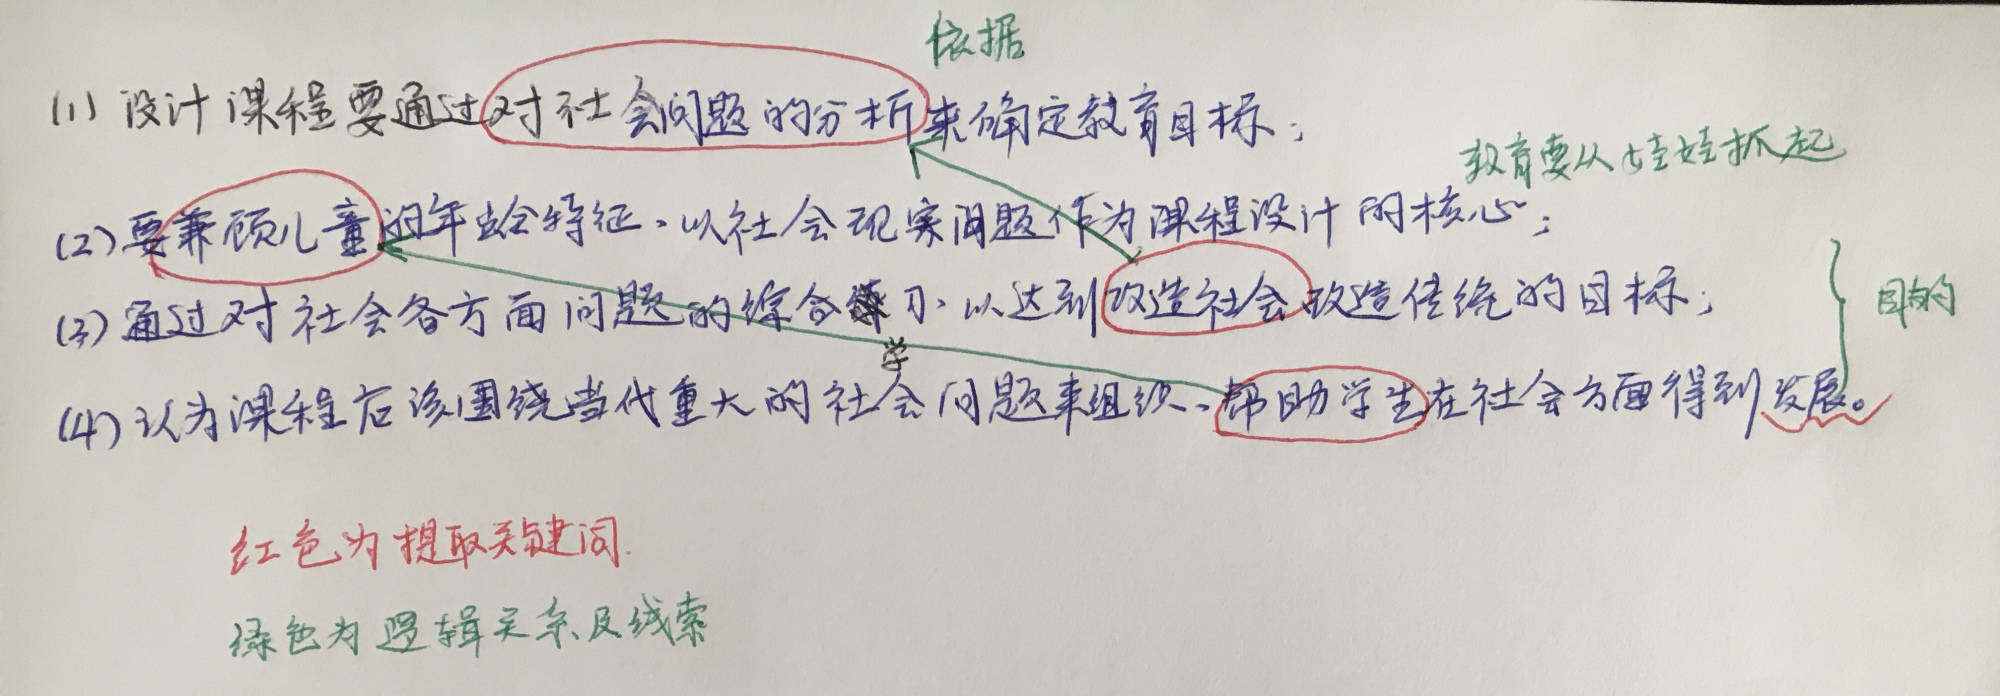 依据
(1) 设计课程要通过对社会问题的分析来确定教育目标；
教育要从娃娃抓起
(2) 要兼顾儿童的年龄特征、以社会现实问题作为课程设计的核心；
(3) 通过对社会各方面问题的综合学习、以达到改造社会改造传统的目标；
目的
(4) 认为课程应该围绕当代重大的社会问题来组织、帮助学生在社会方面得到发展。
红色为提取关键词.
绿色为逻辑关系及线索